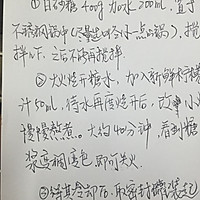 ①白砂糖400g 加水200ml,置于
不锈钢锅中(尽量选
小一点的锅),搅
拌以下,之后不须再搅拌
②大火烧开糖水,加入新鲜柠檬
汁50ml,待水再烧开后,改小火
慢慢熬煮。大约40分钟 看到糖
浆变稠变色,即可关火。
③待其冷却后,取密封罐装起